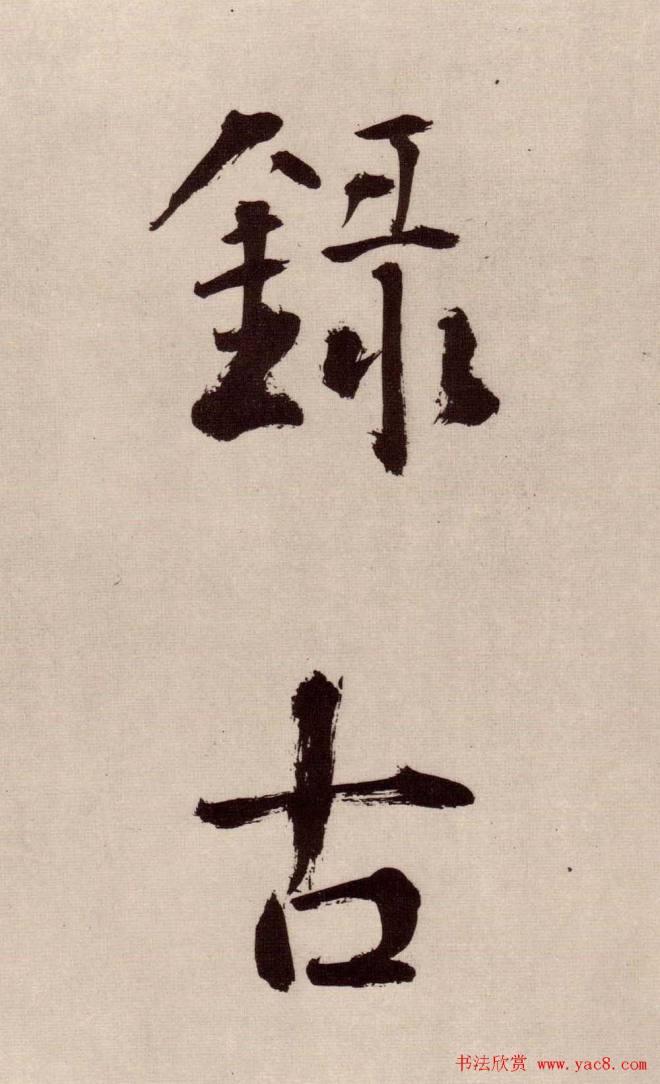 錄古
书法欣赏 www.yac8.com